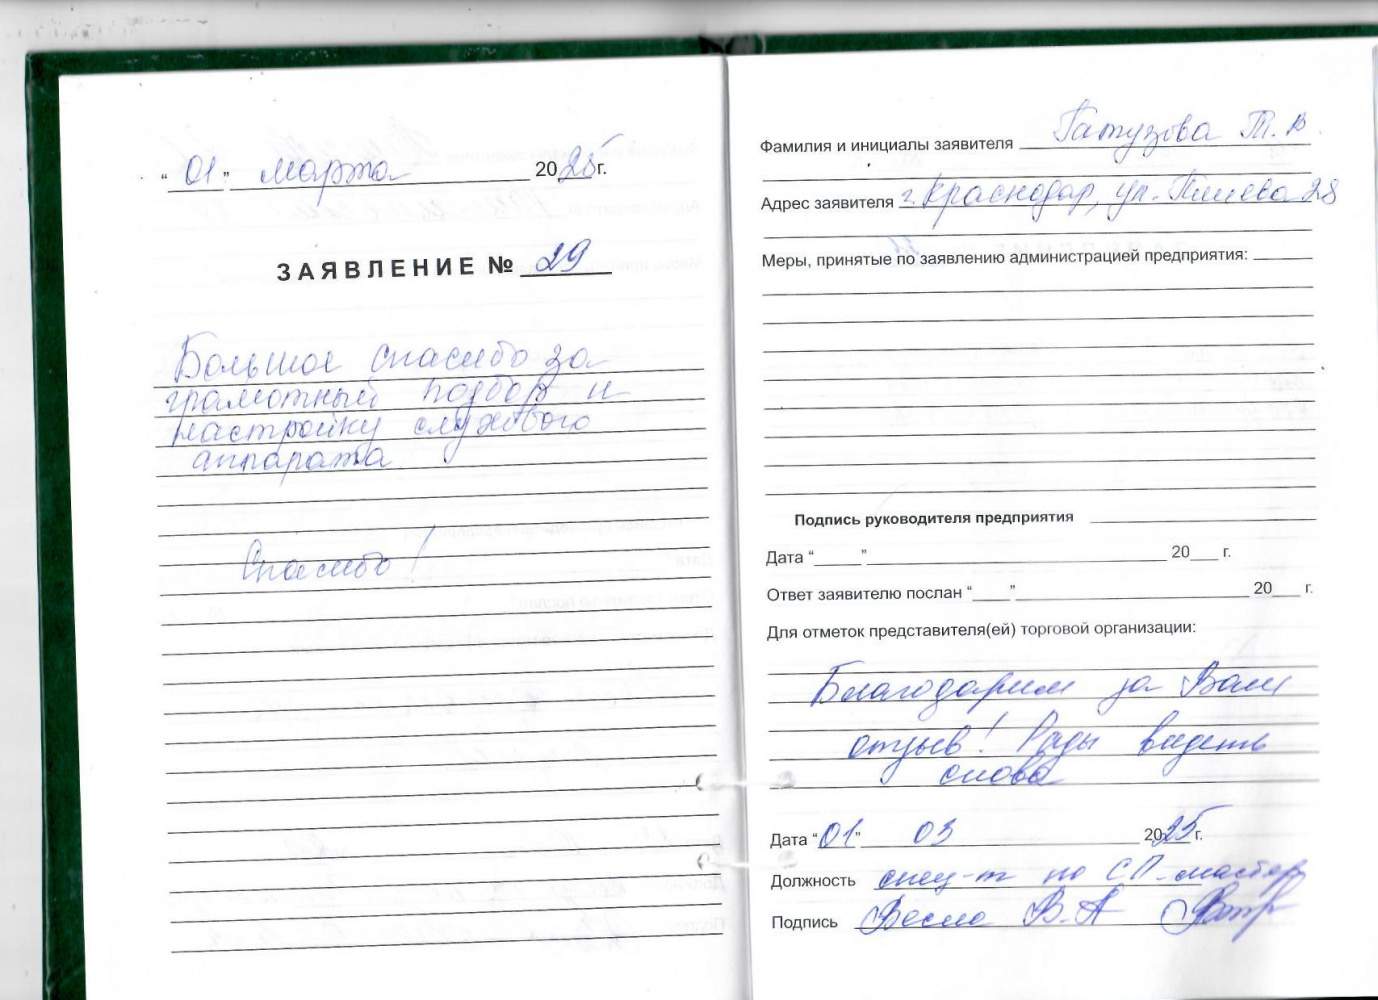 “01” марта 2025г.
ЗАЯВЛЕНИЕ № 29
Большое спасибо за
грамотный подбор и
настройку слухового
аппарата
Спасибо!
Фамилия и инициалы заявителя Гатузова Т.В.
Адрес заявителя г. Краснодар, ул. 28
Меры, принятые по заявлению администрацией предприятия:
Подпись руководителя предприятия
Дата “ ” 20 г.
Ответ заявителю послан “ ” 20 г.
Для отметок представителя(ей) торговой организации:
Благодарим за Ваш
отзыв! Рады видеть
снова
Дата “01” 03 2025г.
Должность спец-т по СП-мастер
Подпись В.А